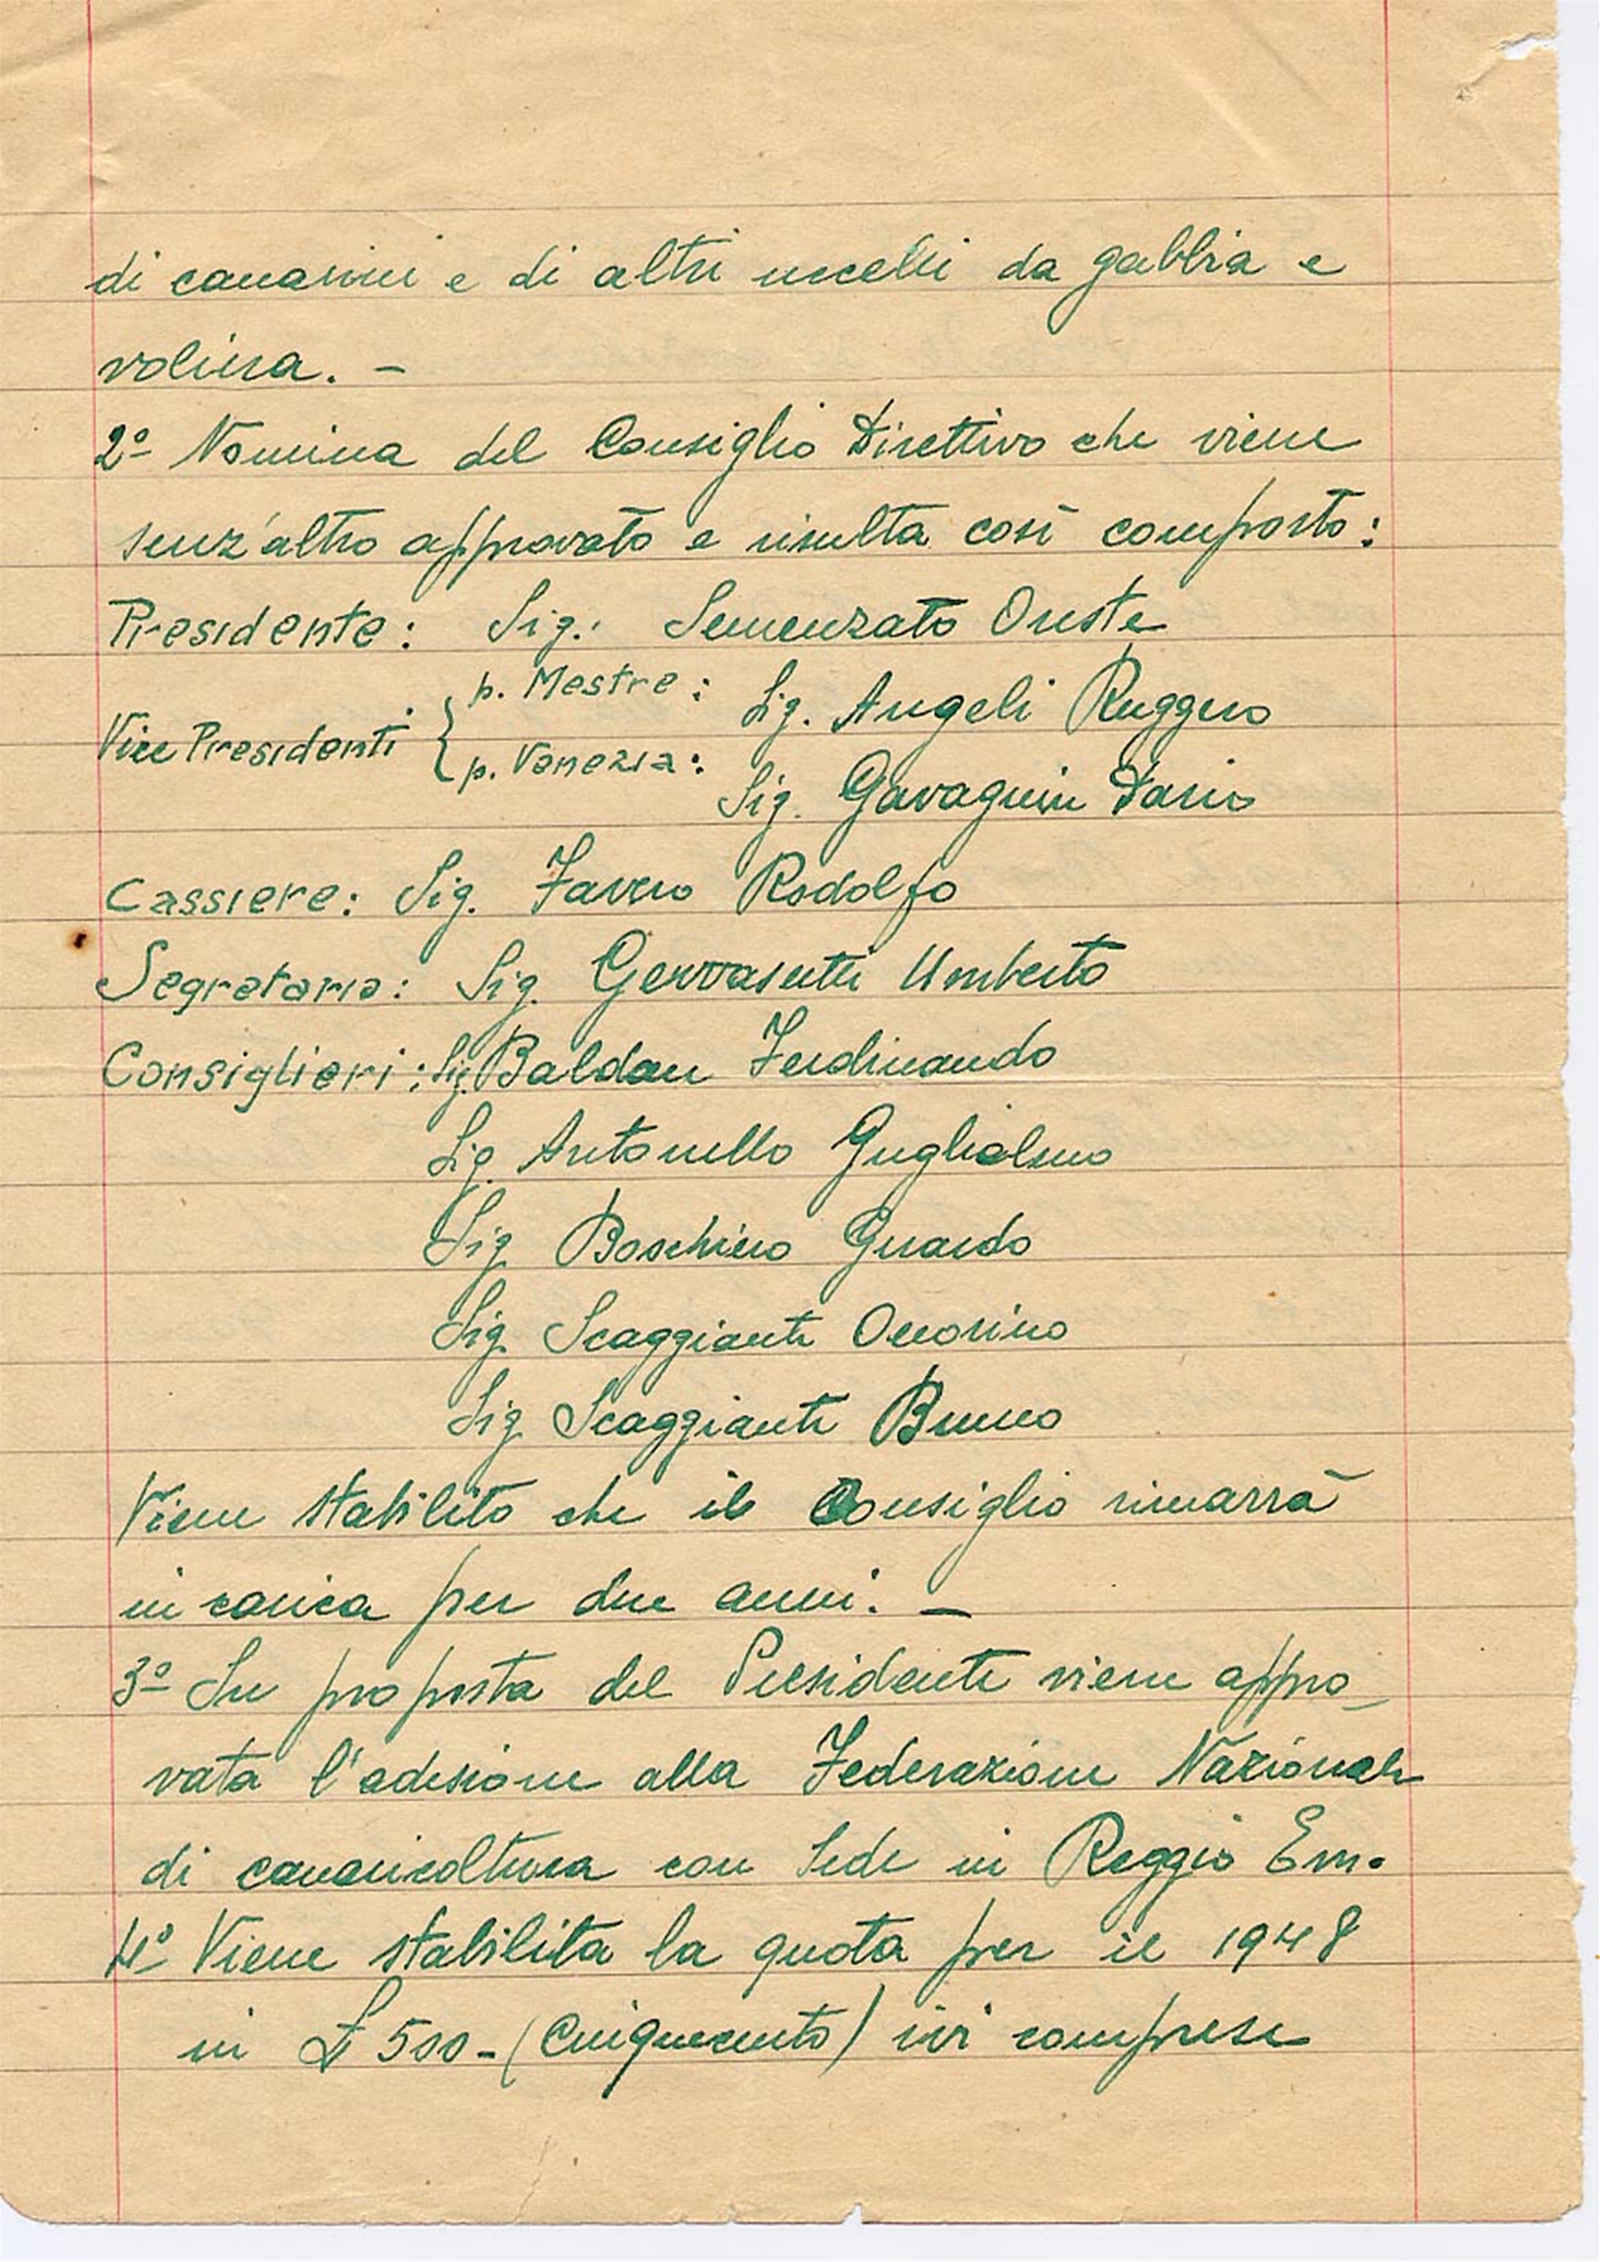 di canarini e di altri uccelli da gabbia e
voliera. -
2º Nomina del Consiglio Direttivo che viene
senz'altro approvato e risulta così composto:
Presidente: Sig. Semenzato Oreste
Vice Presidenti { p. Mestre: Sig. Angeli Ruggero
p. Venezia: Sig. Gavagnin Dario
Cassiere: Sig. Favero Rodolfo
Segretario: Sig. Gervasutti Umberto
Consiglieri: Sig. Baldan Ferdinando
Sig. Antonello Guglielmo
Sig. Boschiero Gerardo
Sig. Scaggiante Onorino
Sig. Scaggiante Bruno
Viene stabilito che il Consiglio rimarrà
in carica per due anni. -
3º Su proposta del Presidente viene appro-
vata l'adesione alla Federazione Nazionale
di canaricoltura con Sede in Reggio Em.
4º Viene stabilita la quota per il 1948
in £ 500 - (Cinquecento) ivi comprese